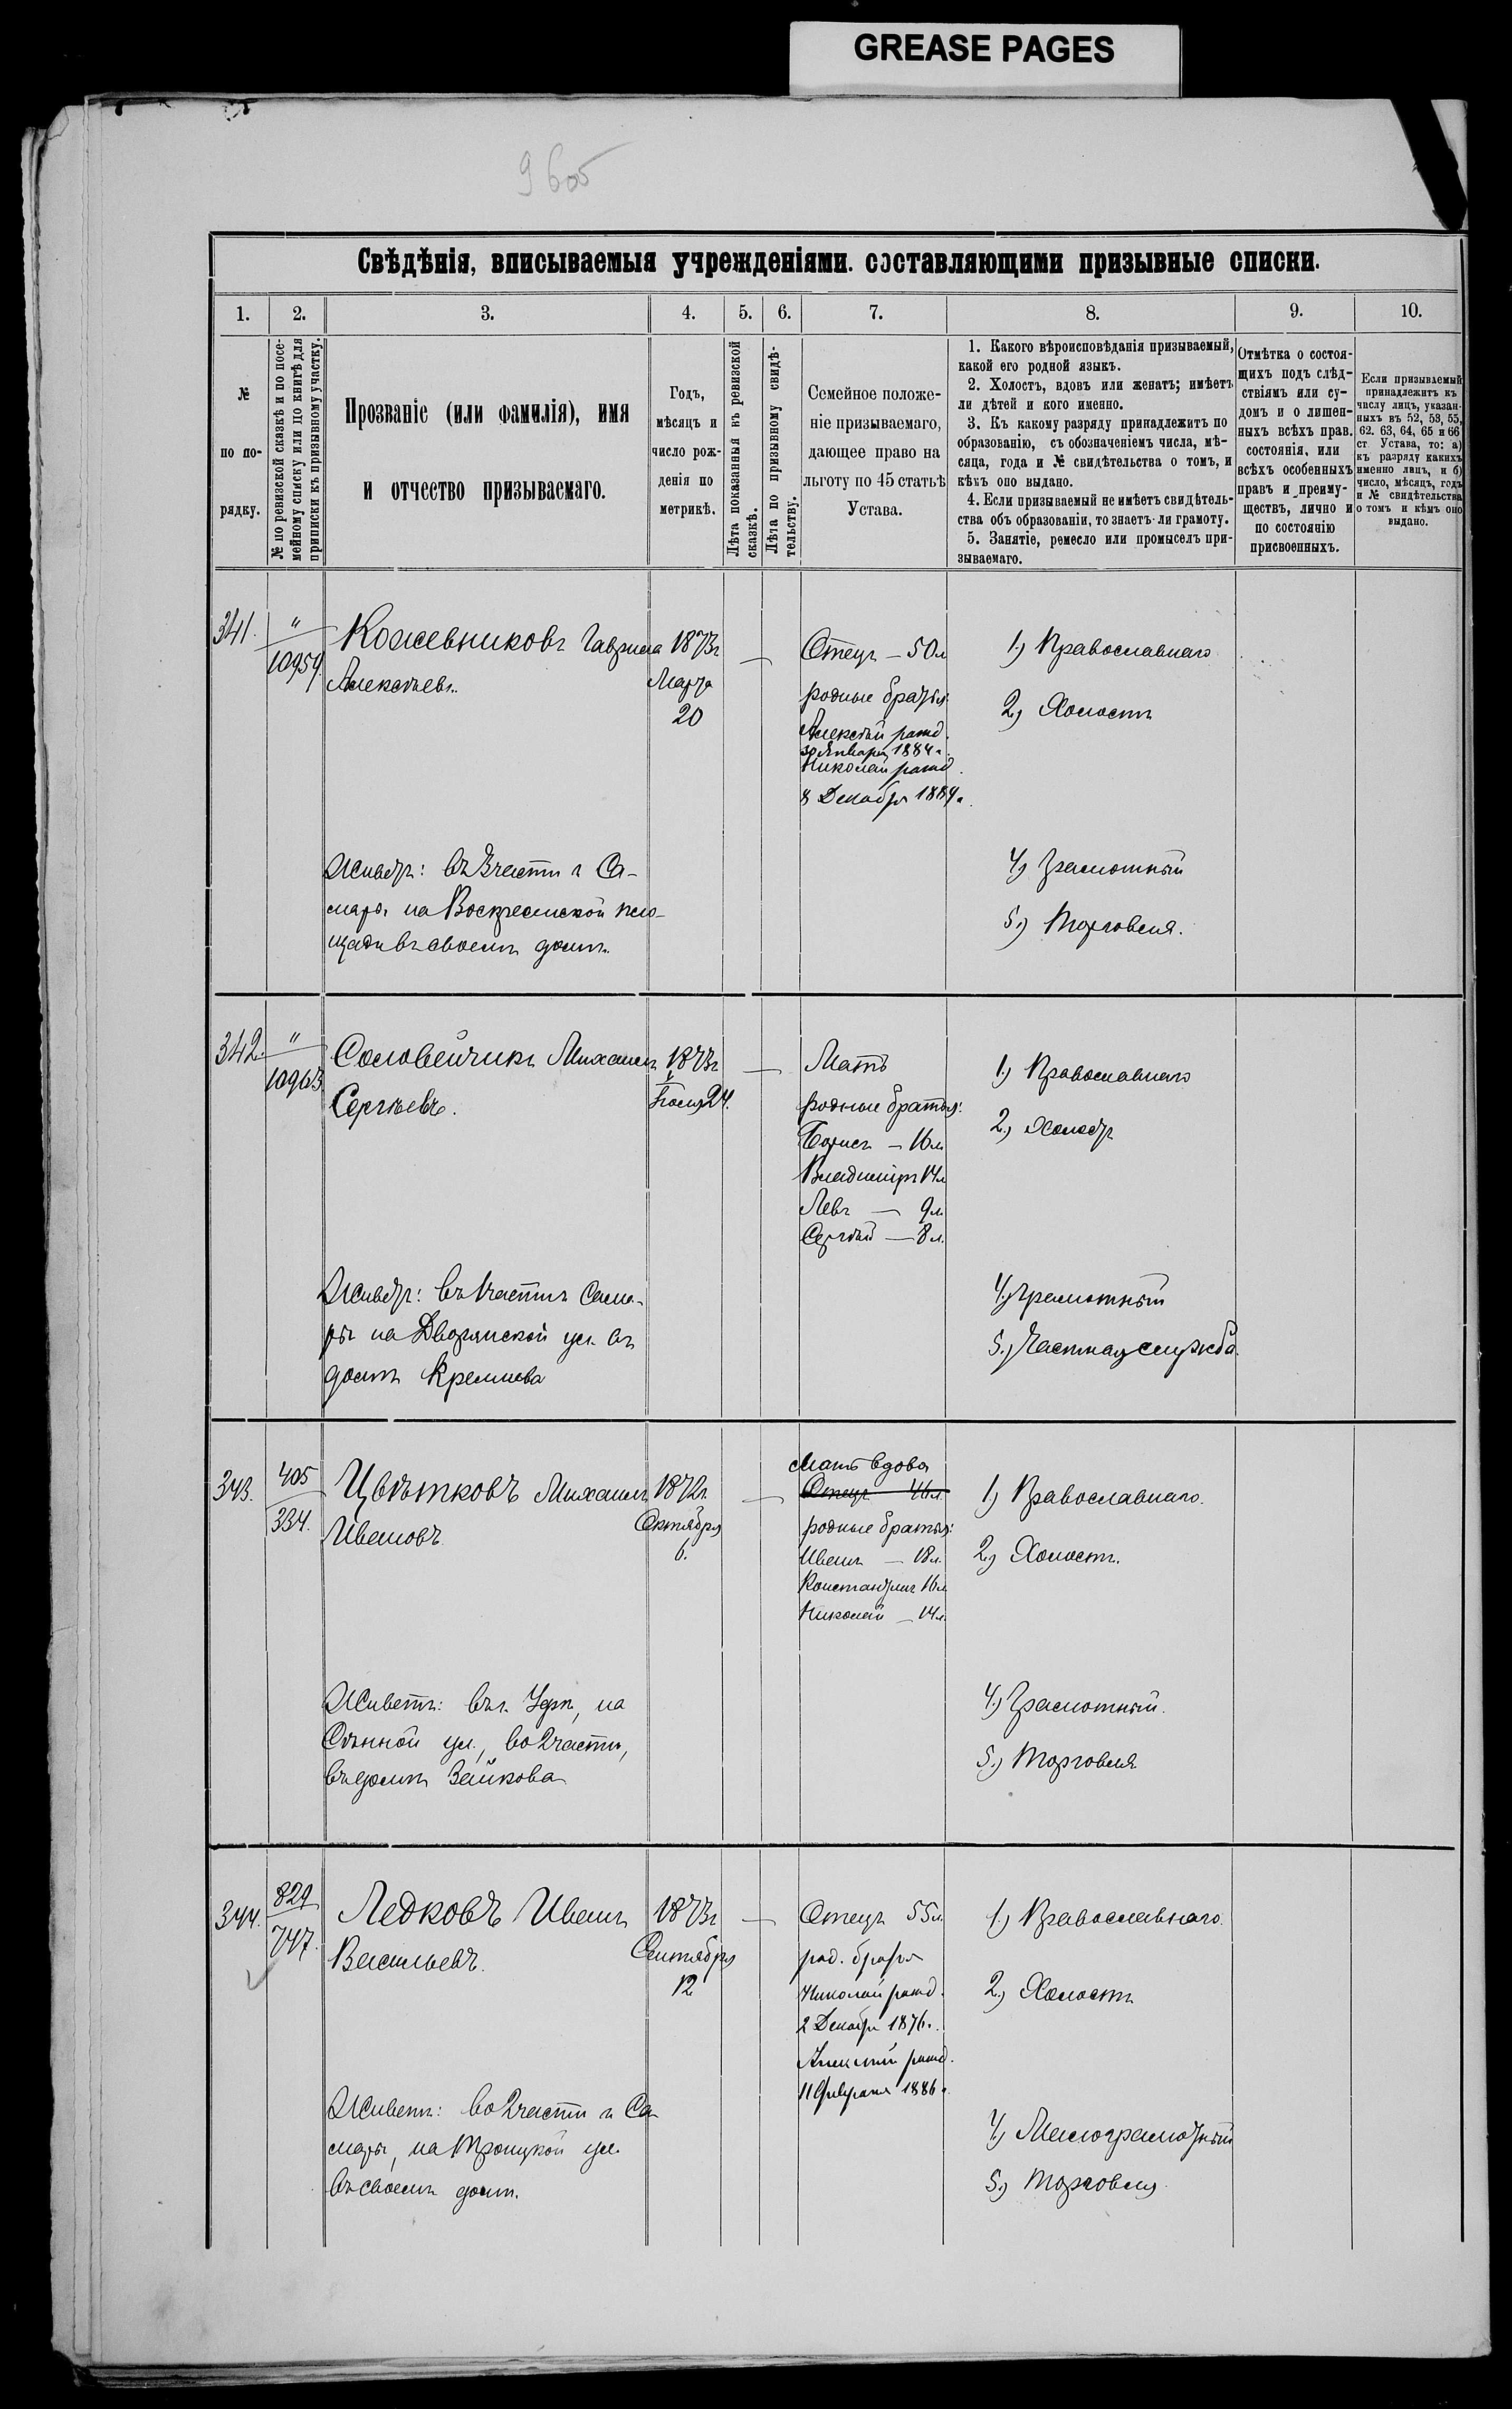 GREASE PAGES
Свѣдѣнія, вписываемыя учрежденіями. составляющими призывные списки.
1. 2. 3. 4. 5. 6. 7. 8. 9. 10.
№
по по-
рядку.
№ по ревизской сказкѣ и по посе-
мейному списку или по книгѣ для
приписки къ призывному участку.
Прозваніе (или фамилія), имя
и отчество призываемаго.
Годъ,
мѣсяцъ и
число рож-
денія по
метрикѣ.
Лѣта показанныя къ ревизской
сказкѣ.
Лѣта по призывному свидѣ-
тельству.
Семейное положе-
ніе призываемаго,
дающее право на
льготу по 45 статьѣ
Устава.
1. Какого вѣроисповѣданія призываемый,
какой его родной языкъ.
2. Холостъ, вдовъ или женатъ; имѣетъ
ли дѣтей и кого именно.
3. Къ какому разряду принадлежитъ по
образованію, съ обозначеніемъ числа, мѣ-
сяца, года и № свидѣтельства о томъ, и
кѣмъ оно выдано.
4. Если призываемый не имѣетъ свидѣтель-
ства объ образованіи, то знаетъ-ли грамоту.
5. Занятіе, ремесло или промыселъ при-
зываемаго.
Отмѣтка о состоя-
щихъ подъ слѣд-
ствіямъ или су-
домъ и о лишен-
ныхъ всѣхъ прав.
состоянія, или
всѣхъ особенныхъ
правъ и преиму-
ществъ, лично и
по состоянію
присвоенныхъ.
Если призываемый
принадлежитъ къ
числу лицъ, указан-
ныхъ въ 52, 53, 55,
62. 63, 64, 65 и 66
ст Устава, то: а)
къ разряду какихъ
именно лицъ, и б)
число, мѣсяцъ, годъ
и № свидѣтельства
о томъ и кѣмъ оно
выдано.
341.
"
10959.
Кожевниковъ Гавріилъ
Алексѣевъ.
1873г
Марта
20
—
Отецъ — 50л
родные братья:
Алексѣй рожд.
30 Января 1884г.
Николай рожд.
8 Декабря 1889г.
1.) Православнаго
2.) Холостъ
Живетъ: въ 3 части г Са-
мары на Воскресенской пло-
щади въ своемъ домѣ.
4.) Грамотный
5.) Торговля.
342.
"
10963.
Соловейчикъ Михаилъ
Сергѣевъ.
1873г
Іюля 24.
—
Мать
родные братья:
Борисъ — 16л
Владиміръ 14л
Левъ — 9л.
Сергѣй — 8л.
1.) Православнаго
2.) Холостъ
Живетъ: въ 1 части г Сама-
ры на Дворянской ул. въ
домѣ Кремнева
4.) Грамотный
5.) Частная служба.
343.
405
334.
Цвѣтковъ Михаилъ
Ивановъ.
1872г.
Октября
6.
—
Мать вдова
Отецъ 46л.
родные братья:
Иванъ — 18л.
Константинъ 16л
Николай — 14л.
1.) Православнаго.
2.) Холостъ.
Живетъ: въ г. Уфѣ, на
Сѣнной ул., во 2 части,
въ домѣ Зайкова
4.) Грамотный.
5.) Торговля
344.
829
747.
Ледковъ Иванъ
Васильевъ.
1873г
Сентября
12
—
Отецъ 55л
род. братья
Николай рожд.
2 Декабря 1876г.
Алексѣй рожд.
11 Февраля 1886г.
1.) Православнаго.
2.) Холостъ
Живетъ: во 2 части г Са-
мары, на Троицкой ул.
въ своемъ домѣ.
4.) Малограмотный
5.) Торговля.